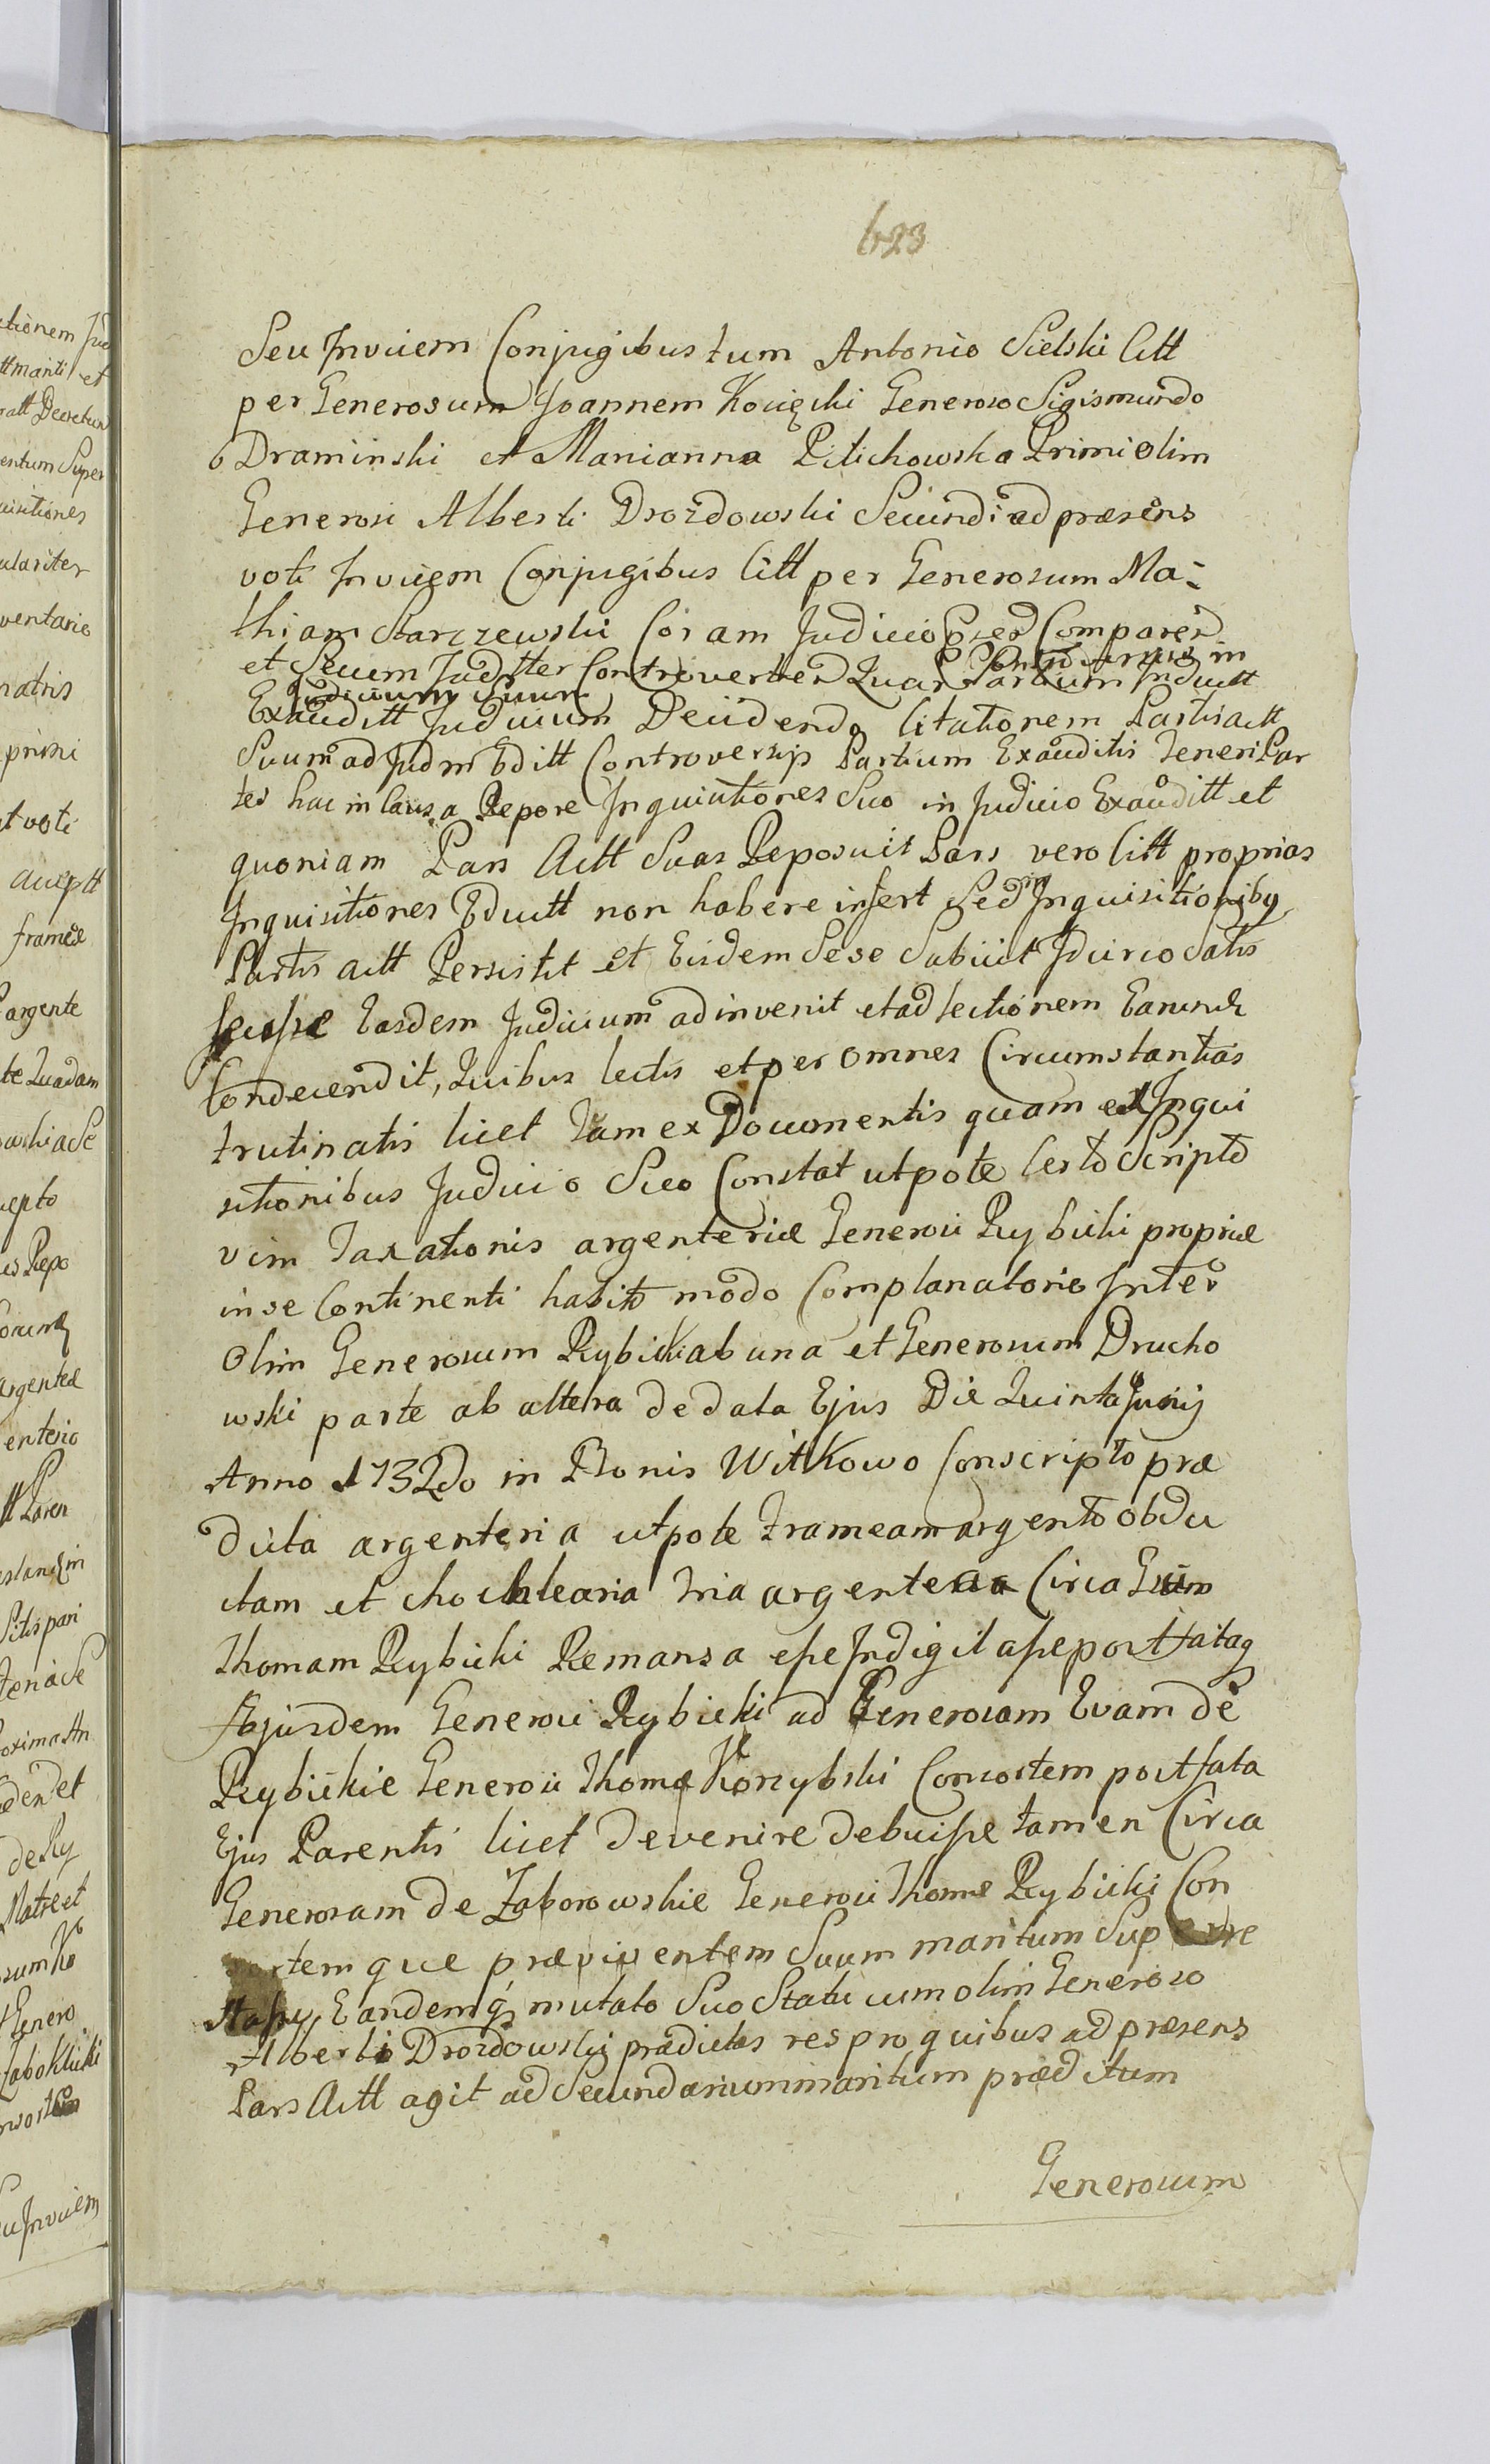 623
Seu Invicem Conjugibus tum Antonio Sielski Citt
per Generosum Joannem Kocięcki Generoso Sigismundo
Draminski et Marianna Pilichowska Primi olim
Generosi Alberti Drozdowski Secundi ad præsens
voti Invicem Conjugibus Citt per Generosum Ma-
thiam Starczewski Coram Judicio Comparen
et Secum Judtter Controverten Quar Partium in
Judicium Suum Induitt
Exauditt Judicium Decidendo Citationem Partis Actt
Suum ad Judm Editt Controversijs Partium Exauditis Teneri Par
tes hac in Causa Repore Inquisitiones Suo in Judicio Exauditt et
quoniam Pars Actt Suas Reposuit Pars vero Citt proprias
Inquisitiones Eduitt non habere infert Sed in Inquisitioniby
Partis actt Persistit et Eisdem Sese Subiicit Idcirco Satis
fecisse Easdem Judicium adinvenit et ad lectionem Earund
Condecendit, Quibus lectis et per omnes Circumstantias
trutinatis licet Tam ex Documentis quam ex Inqui
sitionibus Judicio Suo Constat utpote Certo Scripto
vim Taxationis argenteriæ Generosi Rybicki propriæ
in se Continenti habito modo Complanatorio Inter
Olim Generosum Rybicki ab una et Generosum Drucho
wski parte ab altera de data Ejus Die Quinta Junij
Anno 1732do in Bonis Witkowo Conscripto præ
dicta argenteria utpote frameam argento obdu
ctam et chochlearia tria argentea Circa Gsum
Thomam Rybicki Remansa esse Indigitasse post fataq
Ejusdem Generosi Rybicki ad Generosam Evam de
Rybickie Generosi Thomæ Korzybski Consortem post fata
Ejus Parentis licet devenire debuisse tamen Circa
Generosam de Zaborowskie Generosi Thomæ Rybicki Con
sortem que præviventem Suum maritum Supere
stasse, Eandemq mutato Suo Statu cum olim Generoso
Alberto Drozdowski prædictas res pro quibus ad præsens
Pars Actt agit ad Secundarium maritum præditum
Generosum